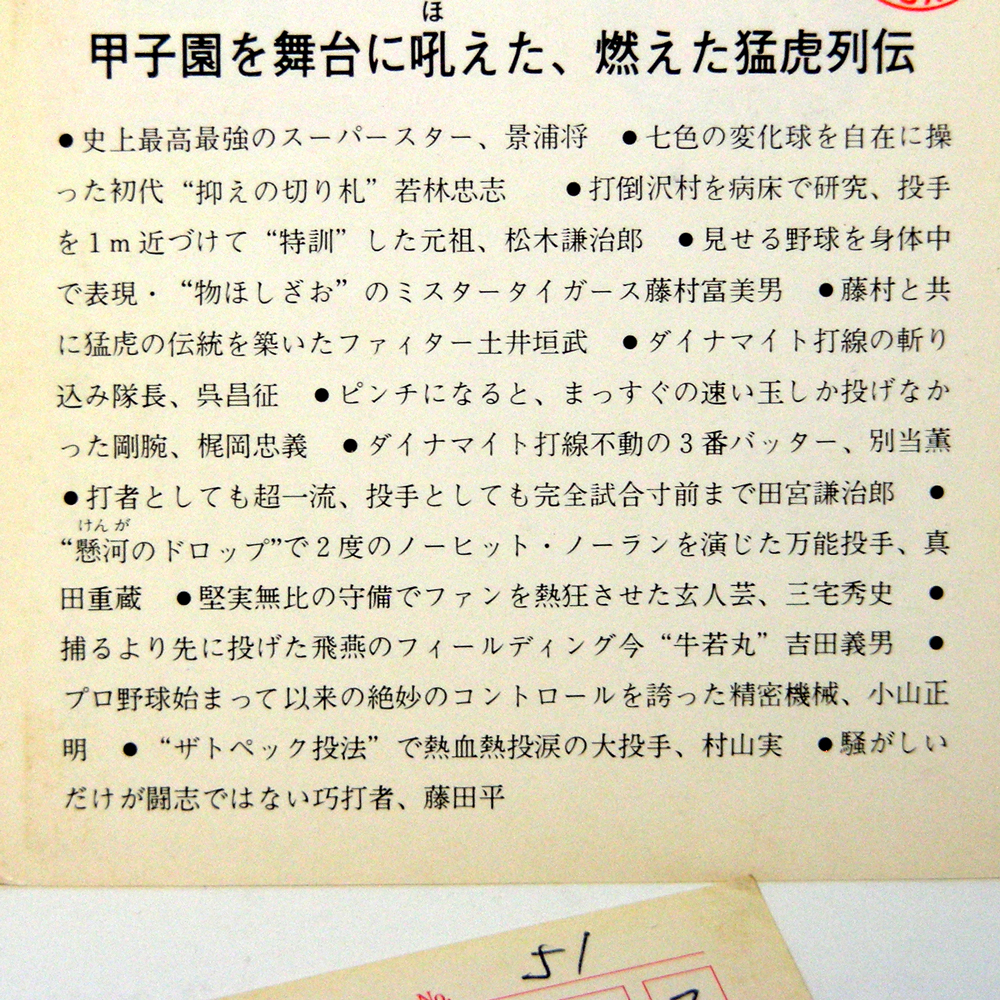 ほ
甲子園を舞台に吼えた、燃えた猛虎列伝
●史上最高最強のスーパースター、景浦将　●七色の変化球を自在に操
った初代“抑えの切り札”若林忠志　　●打倒沢村を病床で研究、投手
を1m近づけて“特訓”した元祖、松木謙治郎　●見せる野球を身体中
で表現・“物ほしざお”のミスタータイガース藤村富美男　●藤村と共
に猛虎の伝統を築いたファィター土井垣武　●ダイナマイト打線の斬り
込み隊長、呉昌征　●ピンチになると、まっすぐの速い玉しか投げなか
った剛腕、梶岡忠義　●ダイナマイト打線不動の3番バッター、別当薫
●打者としても超一流、投手としても完全試合寸前まで田宮謙治郎　●
けんが
“懸河のドロップ”で2度のノーヒット・ノーランを演じた万能投手、真
田重蔵　●堅実無比の守備でファンを熱狂させた玄人芸、三宅秀史　●
捕るより先に投げた飛燕のフィールディング今“牛若丸”吉田義男　●
プロ野球始まって以来の絶妙のコントロールを誇った精密機械、小山正
明　●“ザトペック投法”で熱血熱投涙の大投手、村山実　●騒がしい
だけが闘志ではない巧打者、藤田平
51
No.